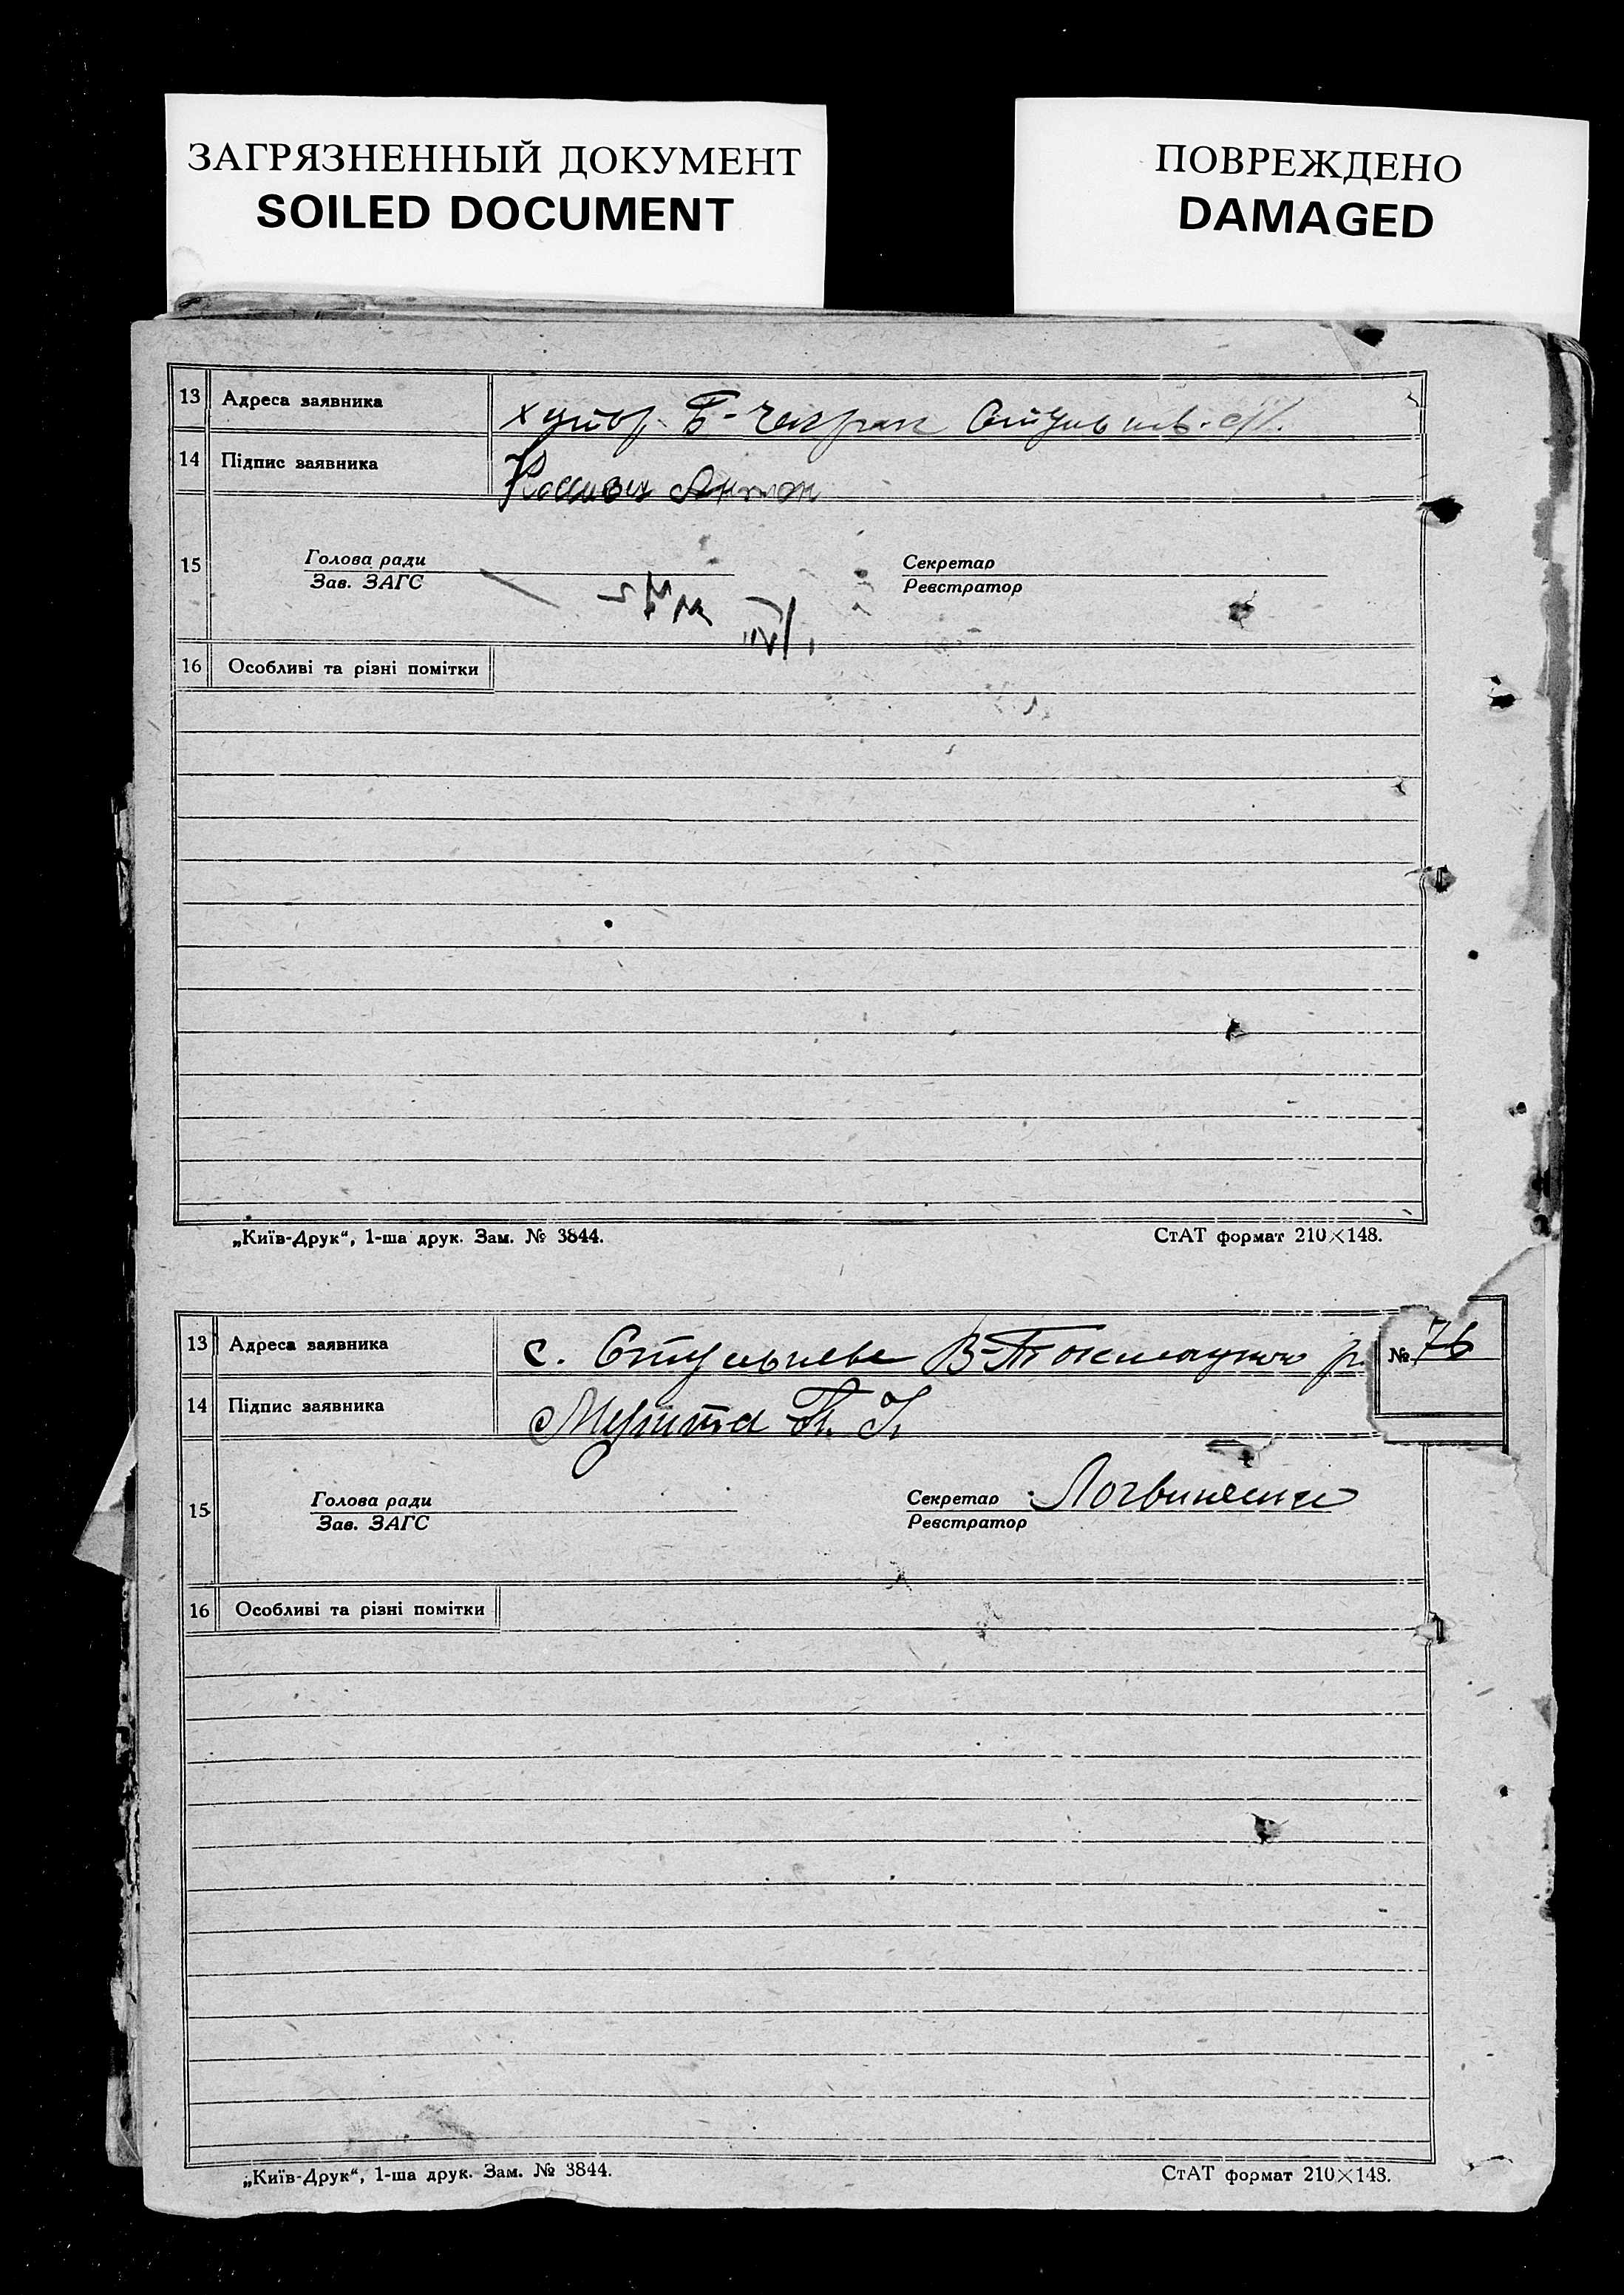 ЗАГРЯЗНЕННЫЙ ДОКУМЕНТ
SOILED DOCUMENT
ПОВРЕЖДЕНО
DAMAGED
13 Адреса заявника хутор Б-Чакрак
14 Підпис заявника Антон
15 Голова ради Секретар
Зав. ЗАГС Реєстратор
16 Особливі та різні помітки
„Київ-Друк“, 1-ша друк. Зам. № 3844. СтАТ формат 210×148.
13 Адреса заявника с. В-Токмацкого р. № 76
14 Підпис заявника
15 Голова ради Секретар Логвиненко
Зав. ЗАГС Реєстратор
16 Особливі та різні помітки
„Київ-Друк“, 1-ша друк. Зам. № 3844. СтАТ формат 210×148.